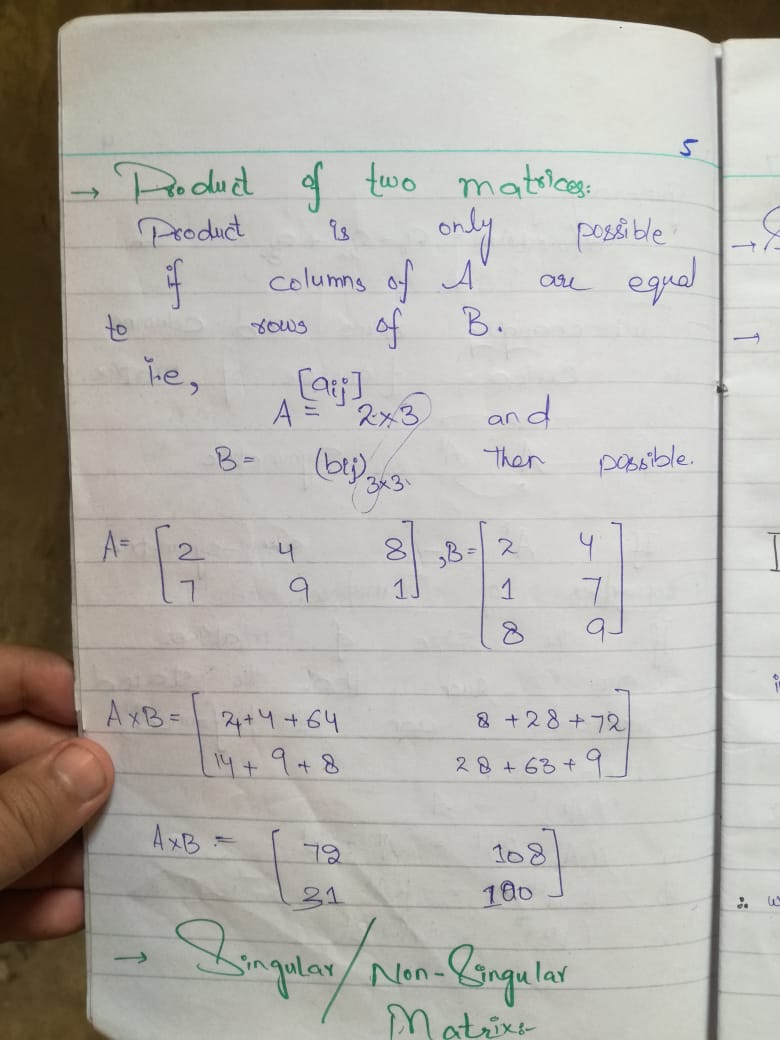 5
→ Product of two matrices:
Product is only possible
if columns of A are equal
to rows of B.
i.e, [aij]
A = 2×3 and
B = (bij)3×3. then possible.
A = [2 4 8 , B = [2 4
7 9 1] 1 7
8 9]
A×B = [4+4+64 8+28+72
14+9+8 28+63+9]
A×B = [72 108
31 100]
→ Singular/Non-Singular
Matrix:-